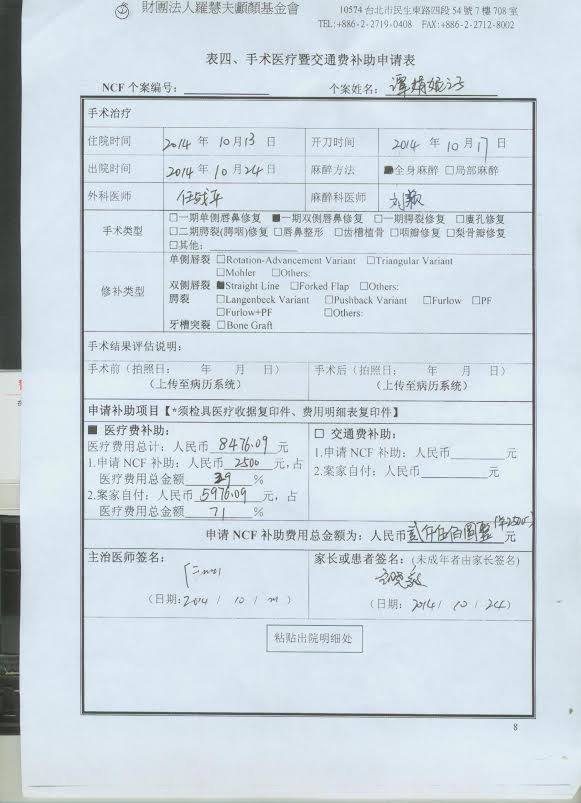 財團法人羅慧夫顱顏基金會
10574 台北市民生東路四段 54 號 7 樓 708 室
TEL:+886-2-2719-0408 FAX:+886-2-2712-8002
表四、手术医疗暨交通费补助申请表
NCF 个案编号: 个案姓名:
手术治疗
住院时间 2014 年 10 月 13 日 开刀时间 2014 年 10 月 17 日
出院时间 2014 年 10 月 24 日 麻醉方法 ■全身麻醉 □局部麻醉
外科医师 任战平 麻醉科医师 刘颖
手术类型 □一期单侧唇鼻修复 ■一期双侧唇鼻修复 □一期腭裂修复 □廔孔修复
□二期腭裂(腭咽)修复 □唇鼻整形 □齿槽植骨 □咽瓣修复 □梨骨瓣修复
□其他:
修补类型 单侧唇裂 □Rotation-Advancement Variant □Triangular Variant
□Mohler □Others:
双侧唇裂 ■Straight Line □Forked Flap □Others:
腭裂 □Langenbeck Variant □Pushback Variant □Furlow □PF
□Furlow+PF □Others:
牙槽突裂 □Bone Graft
手术结果评估说明:
手术前（拍照日: 年 月 日） 手术后（拍照日: 年 月 日）
（上传至病历系统） （上传至病历系统）
申请补助项目【*须检具医疗收据复印件、费用明细表复印件】
■ 医疗费补助: □ 交通费补助:
医疗费用总计: 人民币 8476.09 元 1.申请 NCF 补助: 人民币 元
1.申请 NCF 补助: 人民币 2500 元,占 2.案家自付: 人民币 元
医疗费用总金额 29 %
2.案家自付: 人民币 5976.09 元,占
医疗费用总金额 71 %
申请 NCF 补助费用总金额为: 人民币 贰仟伍佰圆整 元
主治医师签名: 家长或患者签名: (未成年者由家长签名)
（日期: 2014 / 10 / ） （日期: 2014 / 10 / 24）
粘贴出院明细处
8